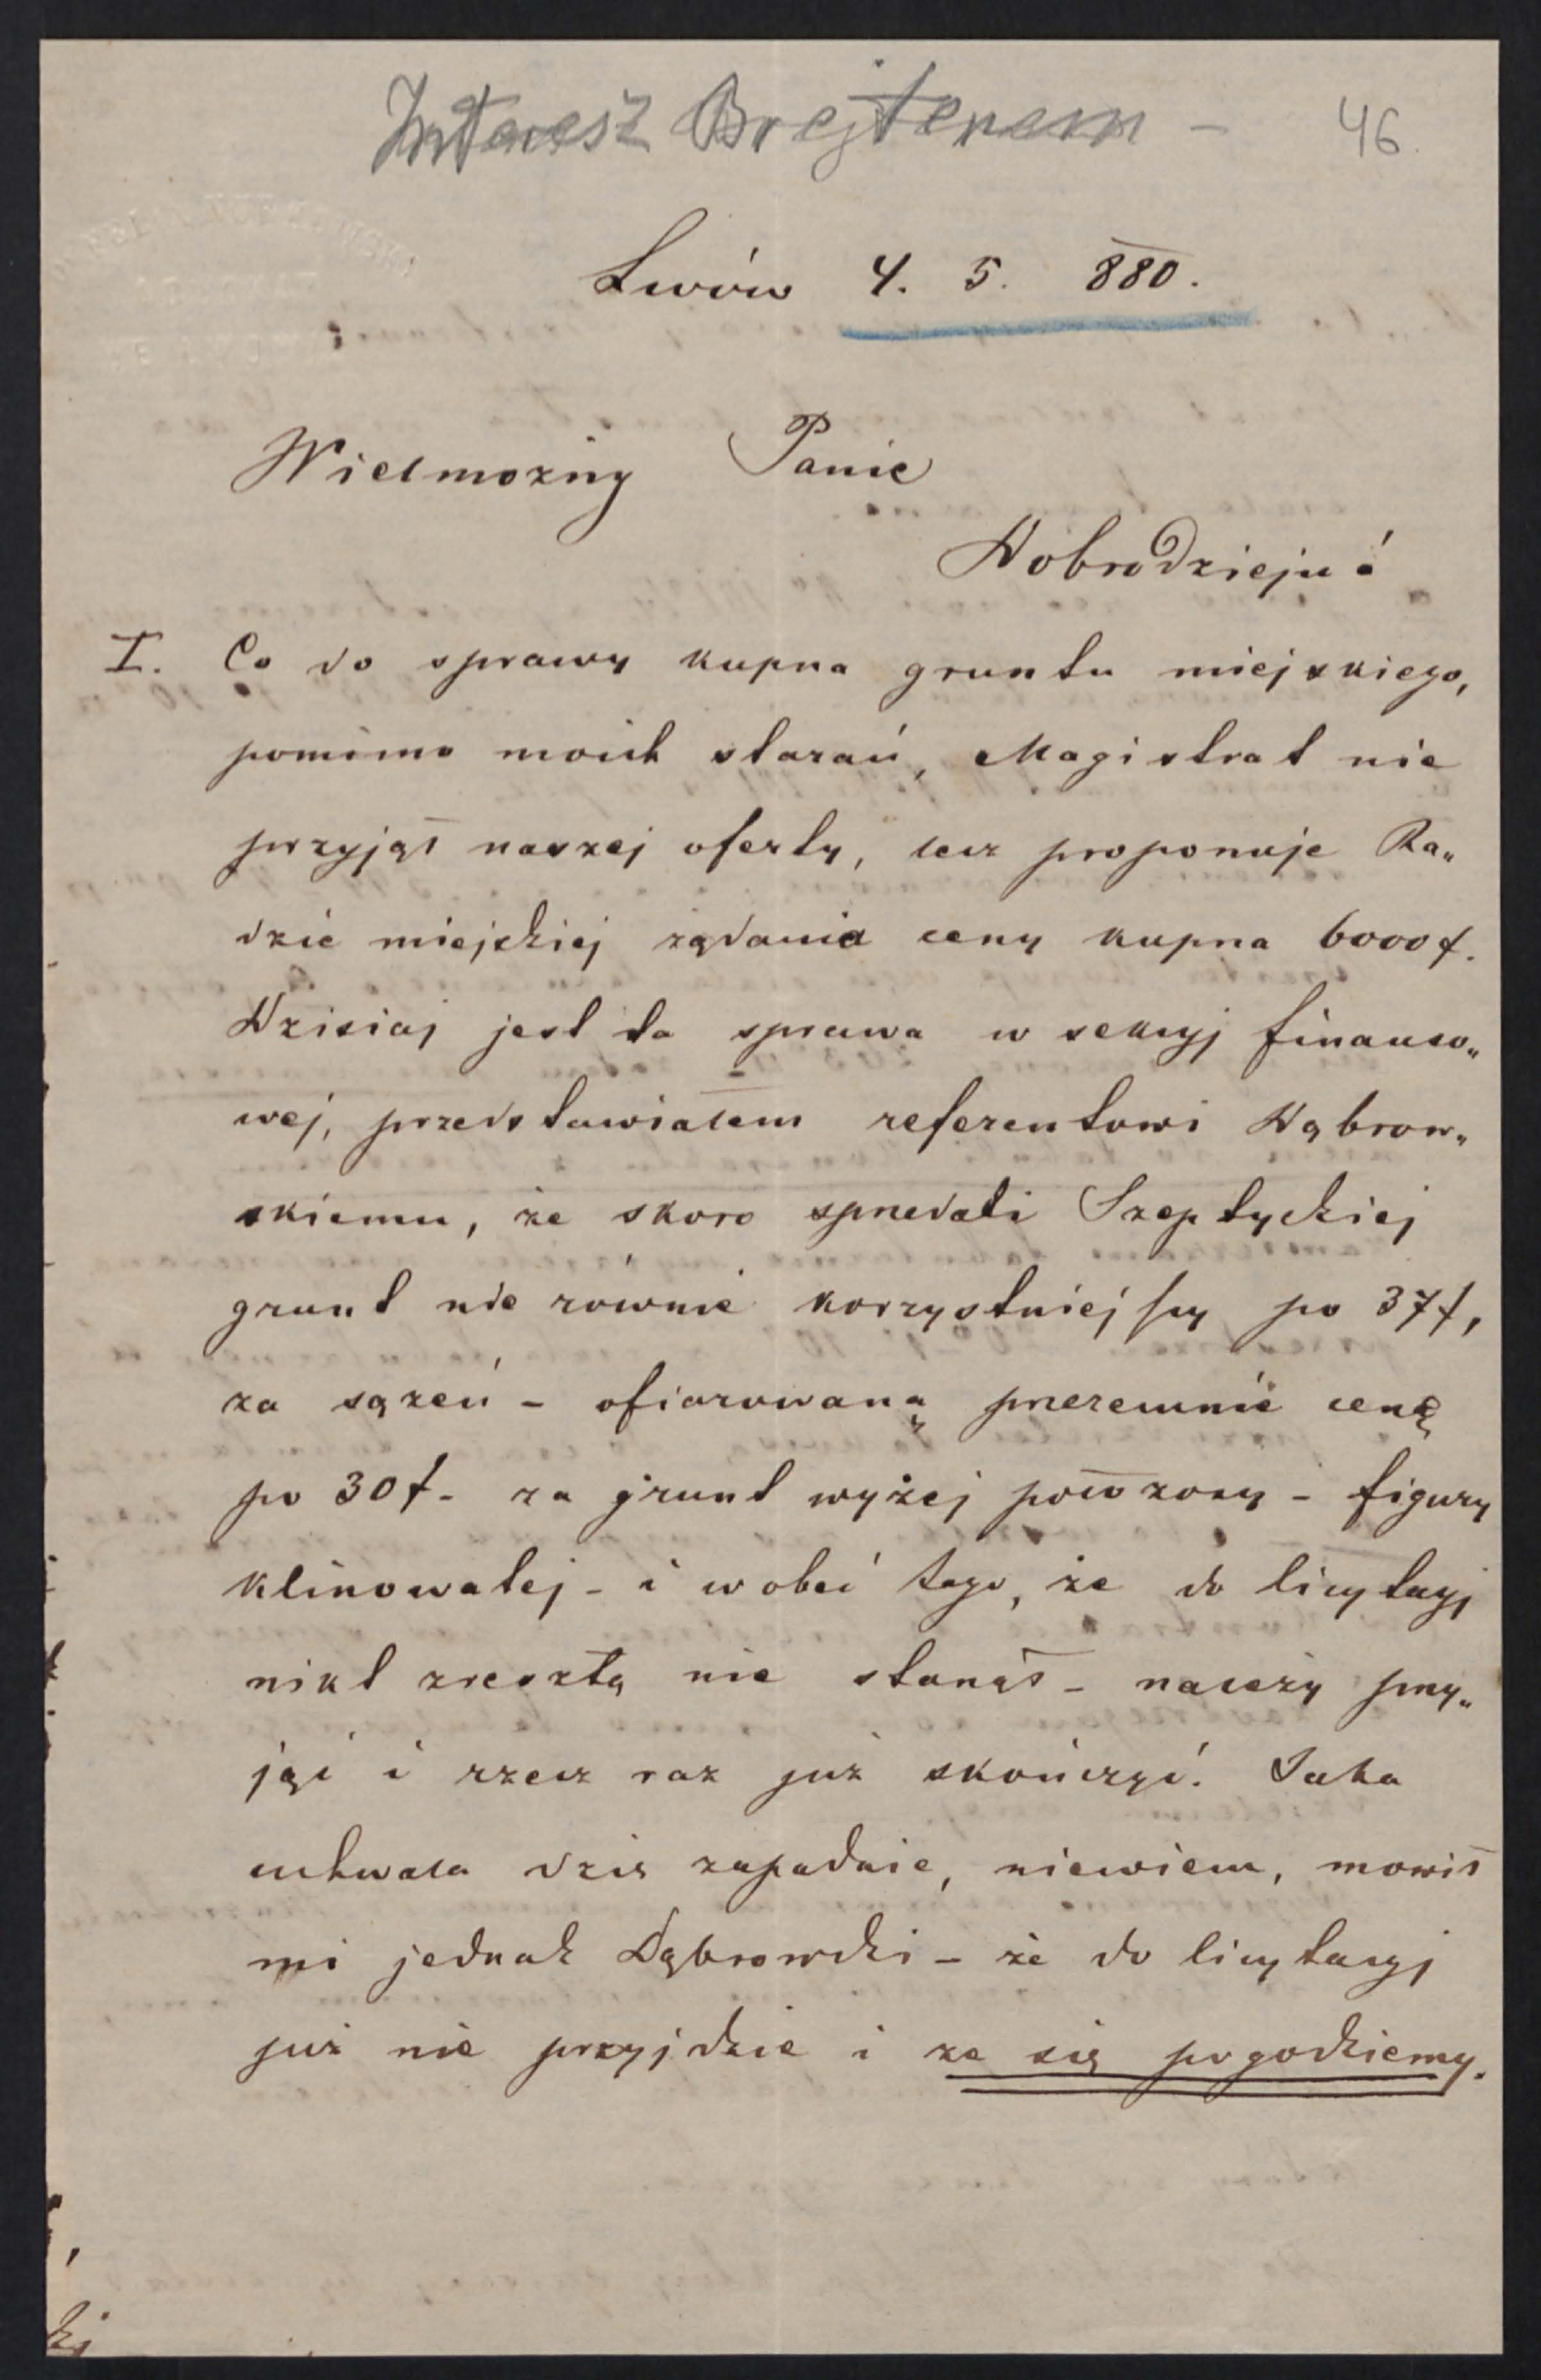 Interes z Brejterem -
46
Lwów 4. 5. 880.
Wielmożny Panie
Dobrodzieju!
I. Co do sprawy kupna gruntu miejskiego,
pomimo moich starań, Magistrat nie
przyjął naszej oferty, lecz proponuje Ra„
dzie miejskiej żądania ceny kupna 6000 f.
Dzisiaj jest ta sprawa w sekcyj finanso„
wej, przedstawiałem referentowi Dąbrow„
skiemu, że skoro sprzedali Szeptyckiej
grunt nie równie korzystniejszy po 37 f,
za sążeń - ofiarowaną przezemnie cenę
po 30 f - za grunt wyżej położony - figury
klinowatej - i wobec tego, że do licytacyj
nikt zresztą nie stanął - należy przy„
jąć i rzecz raz już skończyć. Jaka
uchwała dziś zapadnie, niewiem, mówił
mi jednak Dąbrowski - że do licytacyj
już nie przyjdzie i że się pogodziemy.